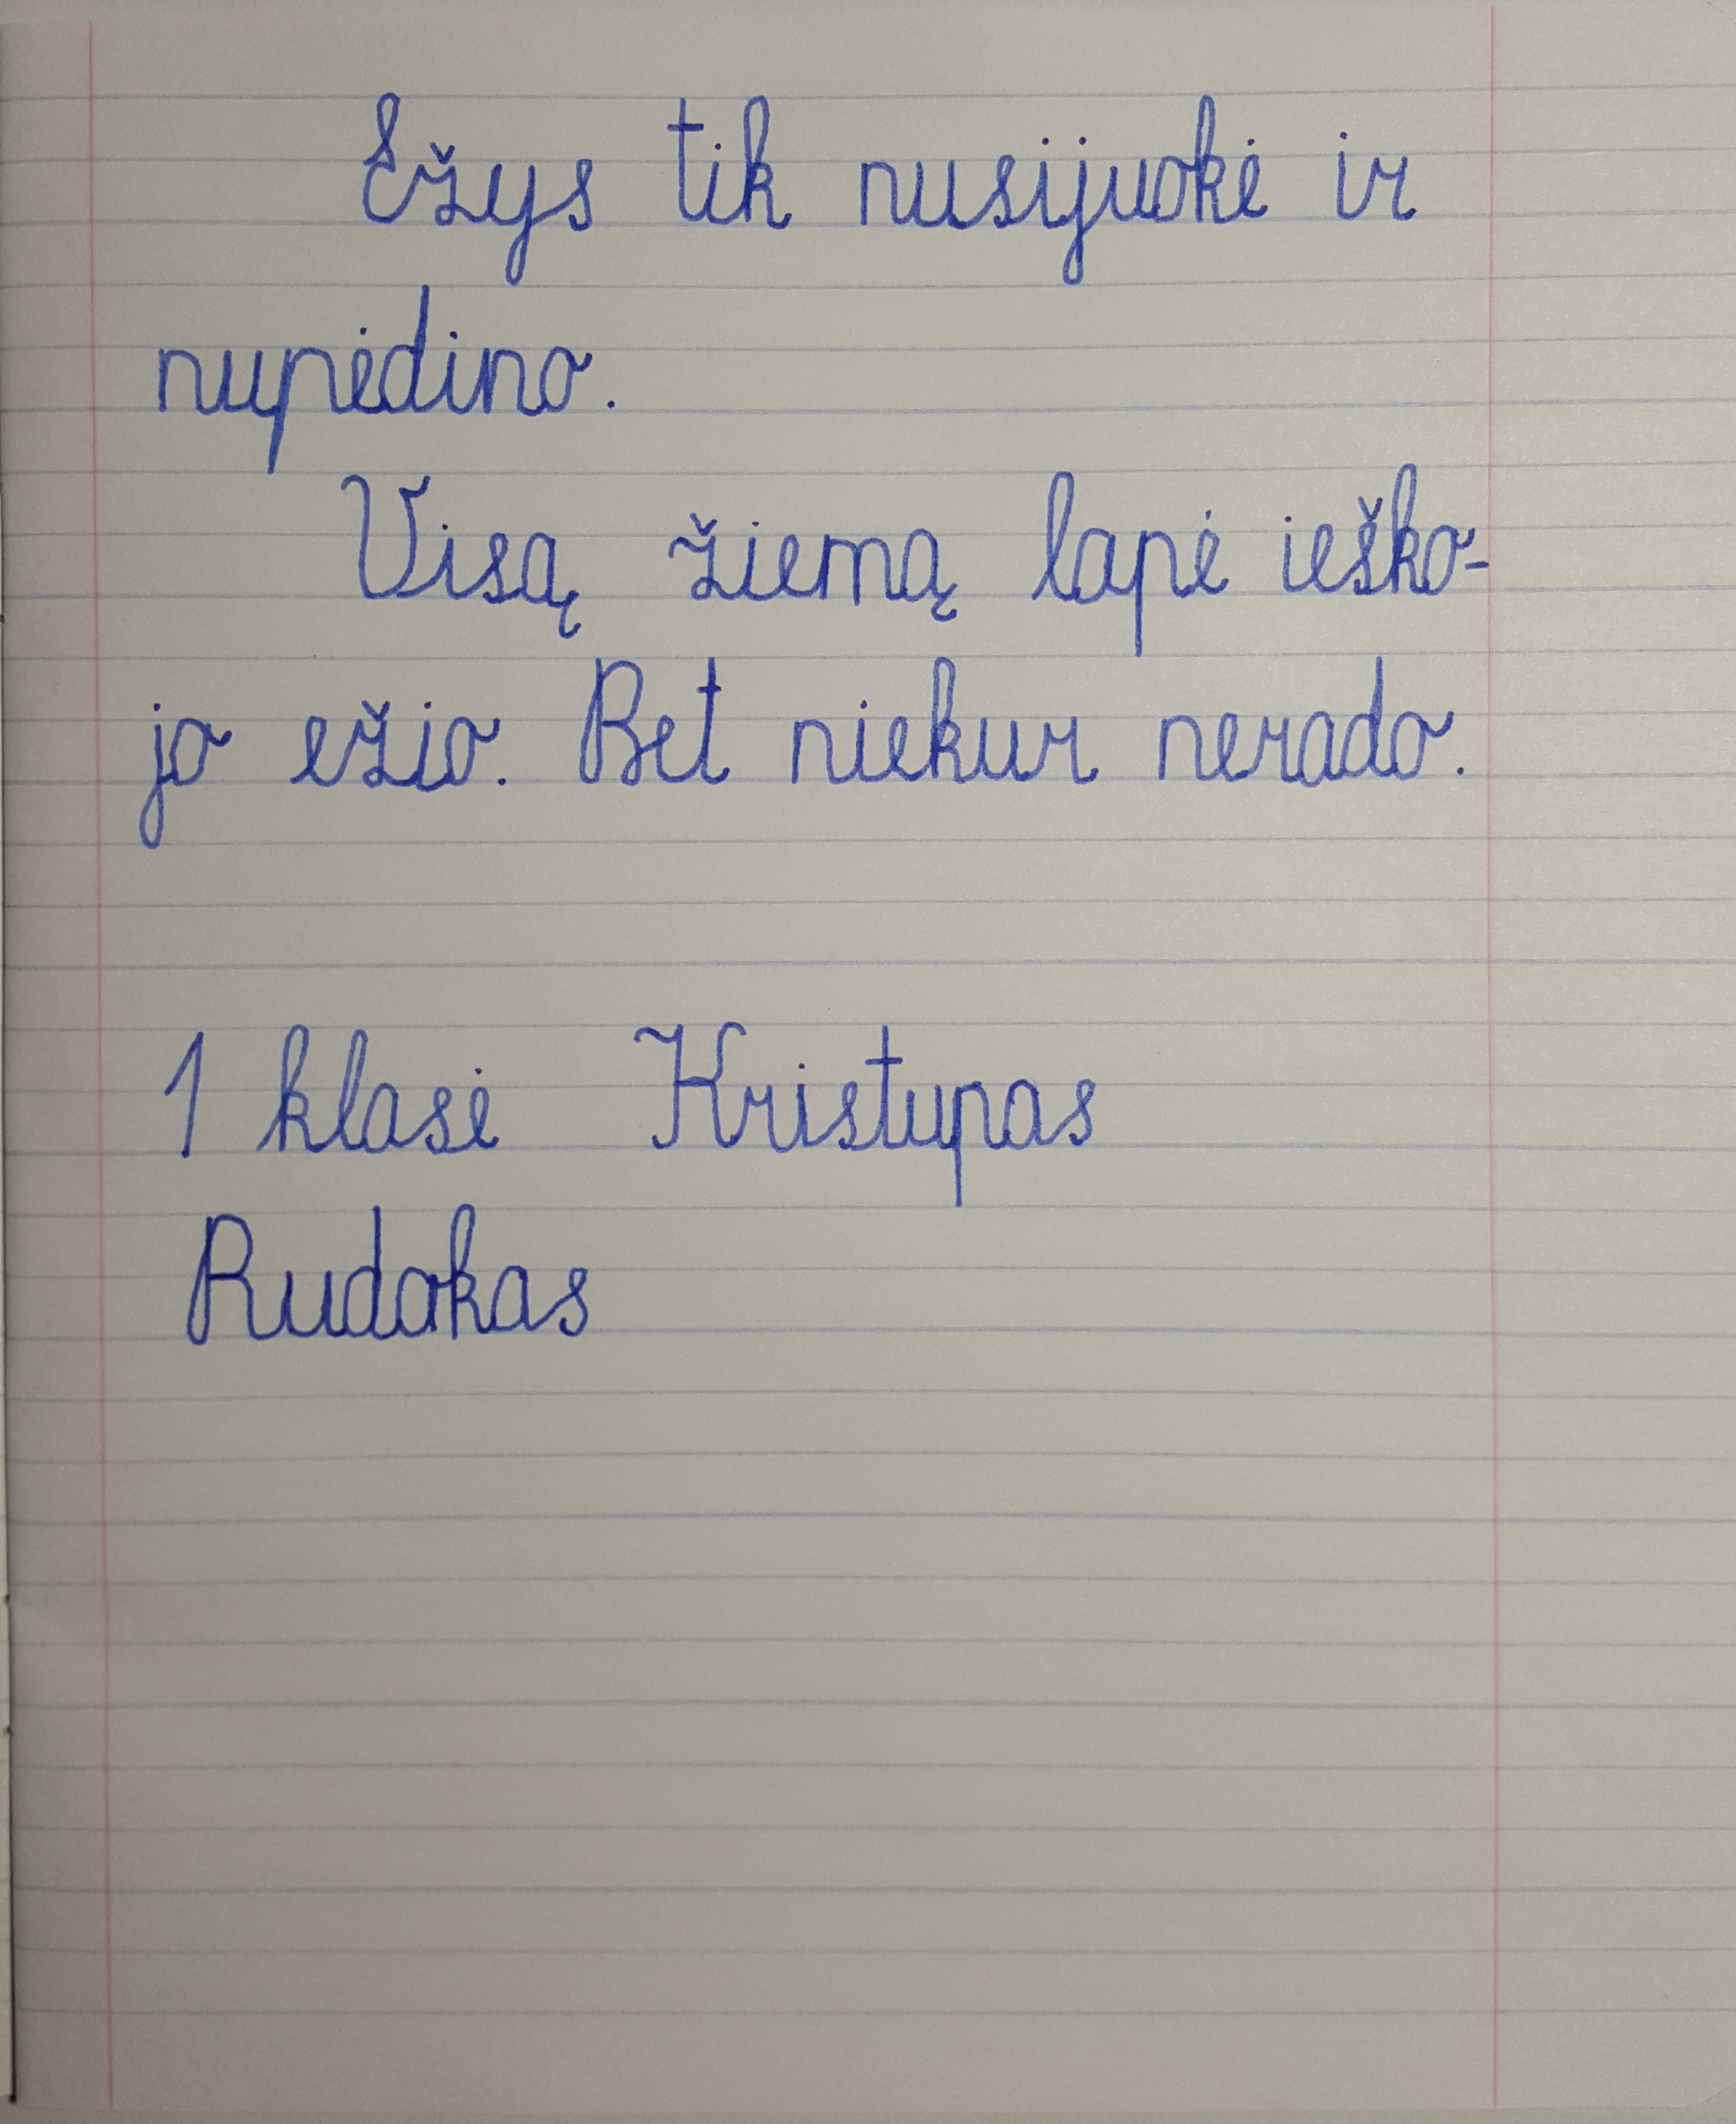 Ežys tik nusijuokė ir
nupėdino.
Visą žiemą lapė ieško-
jo ežio. Bet niekur nerado.
1 klasė Kristupas
Rudokas